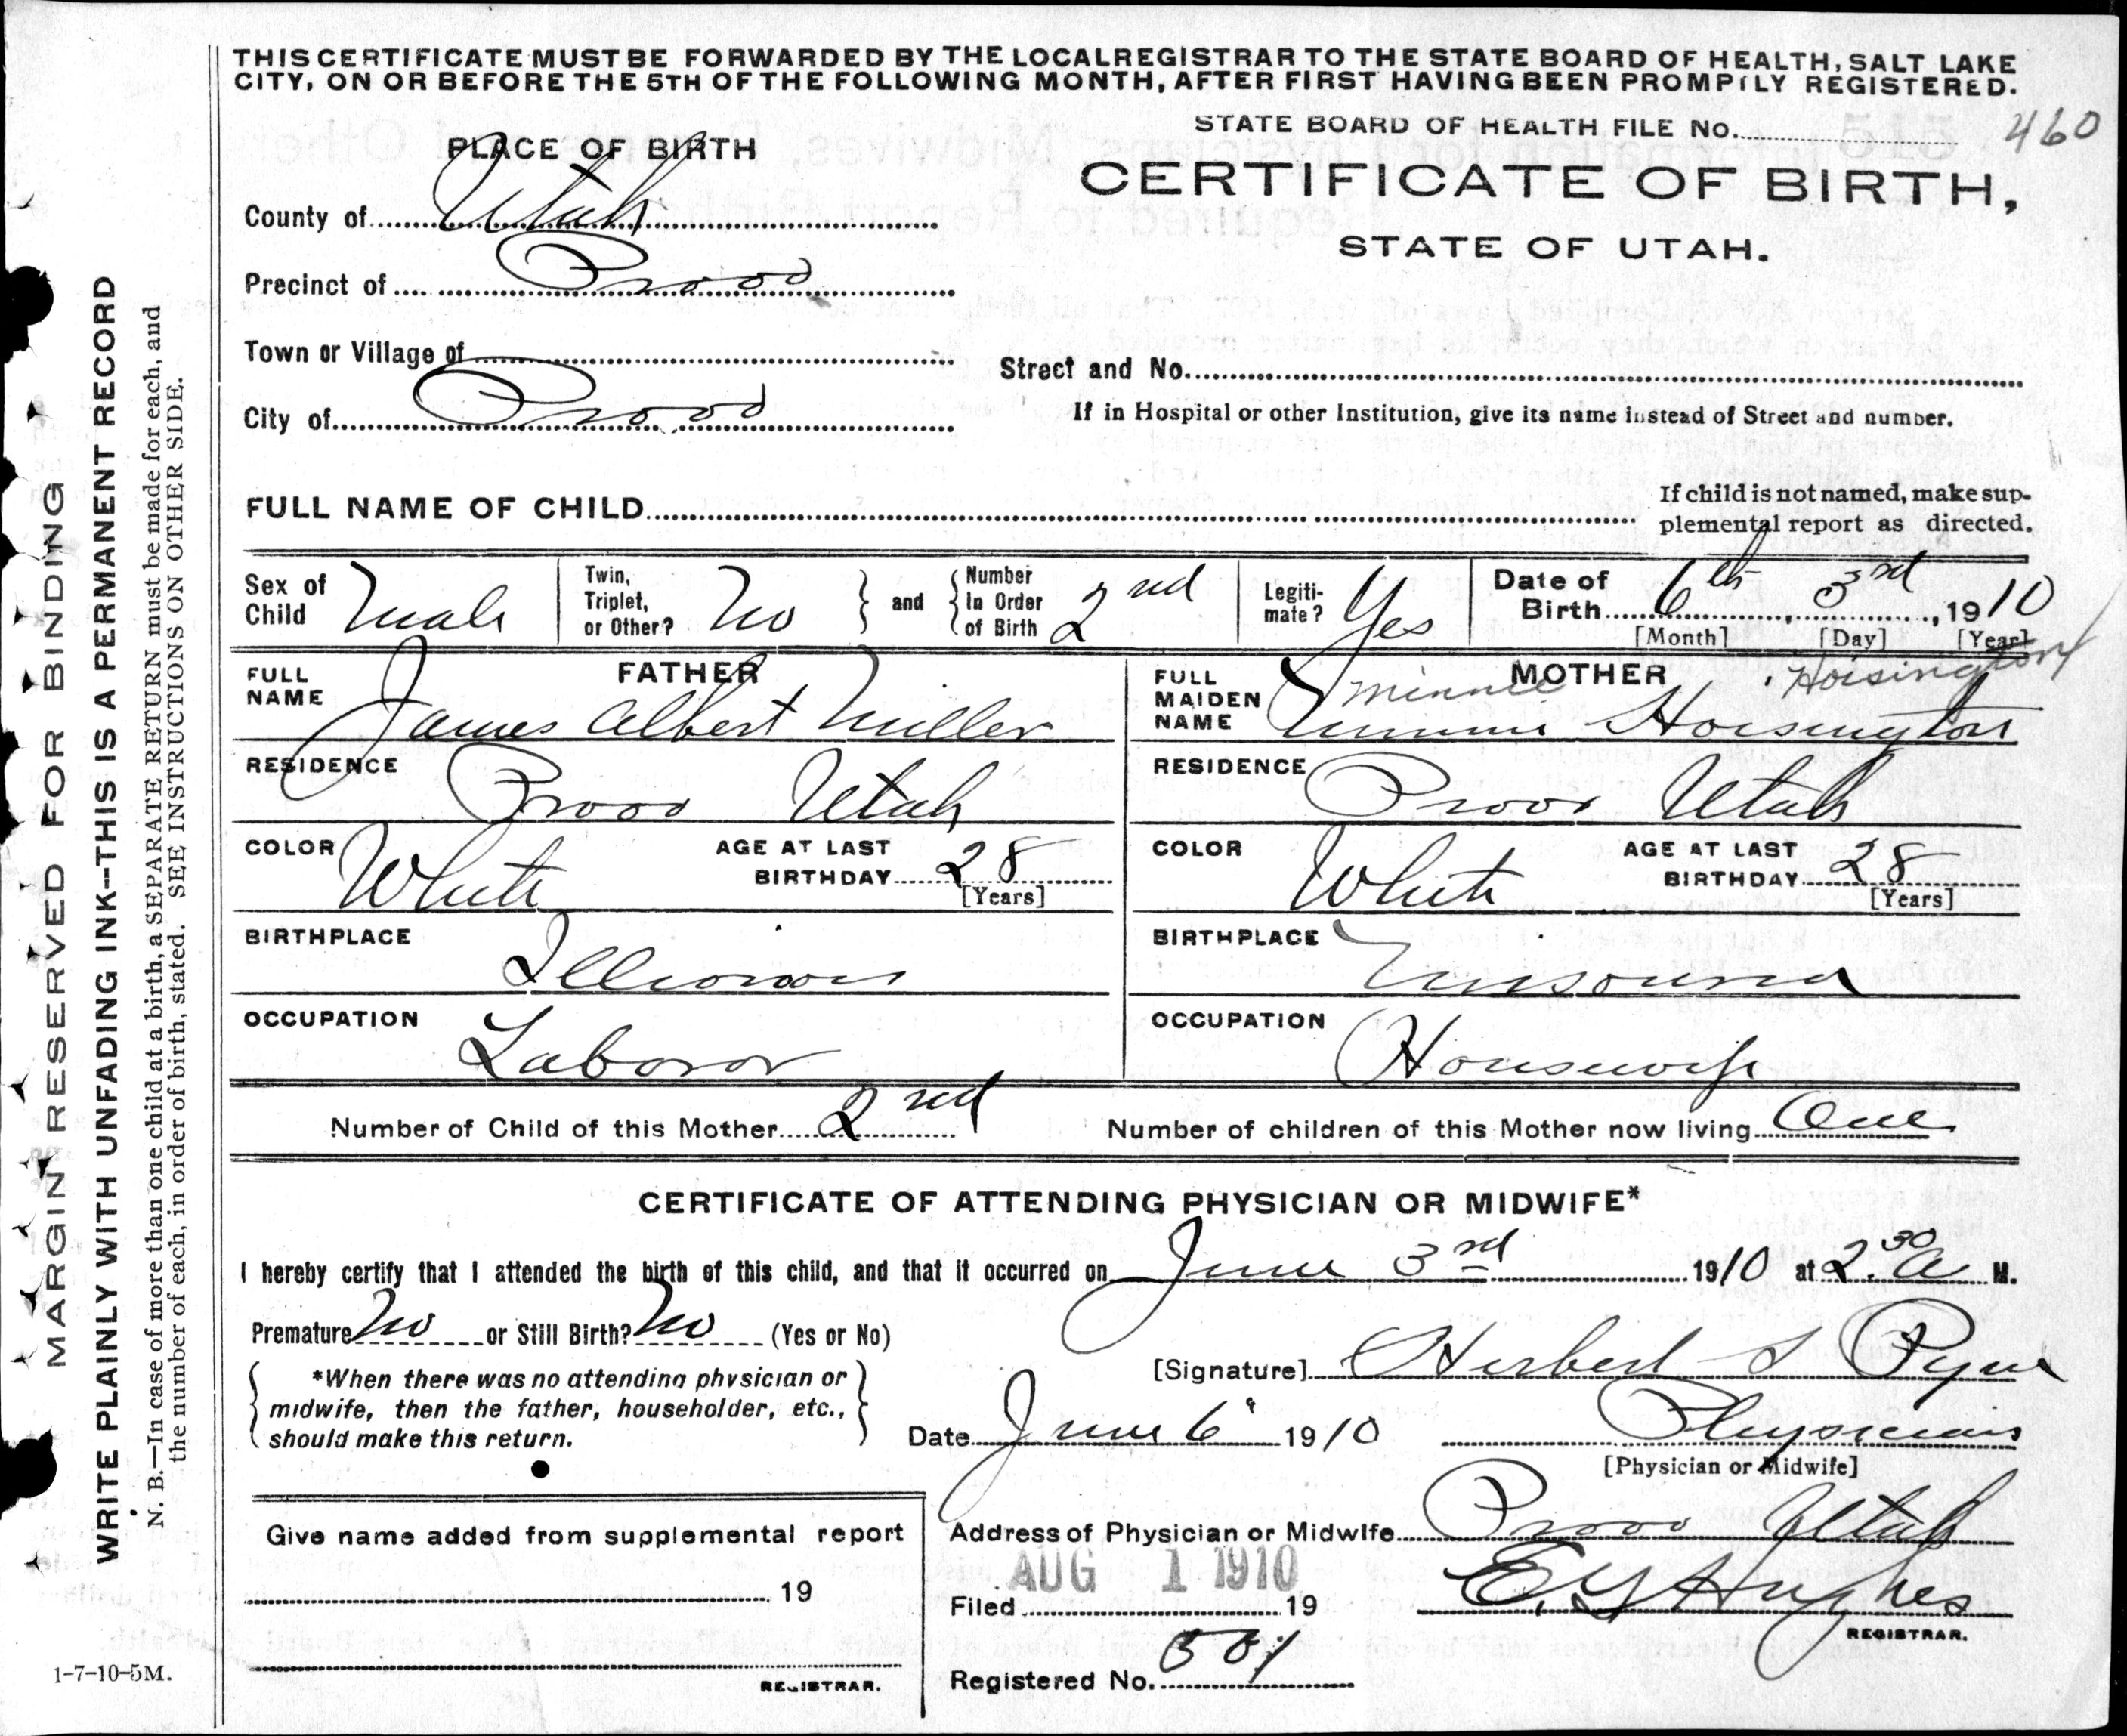 THIS CERTIFICATE MUST BE FORWARDED BY THE LOCAL REGISTRAR TO THE STATE BOARD OF HEALTH, SALT LAKE
CITY, ON OR BEFORE THE 5TH OF THE FOLLOWING MONTH, AFTER FIRST HAVING BEEN PROMPTLY REGISTERED.
STATE BOARD OF HEALTH FILE No. 460
PLACE OF BIRTH
CERTIFICATE OF BIRTH,
STATE OF UTAH.
County of Utah
Precinct of Provo
Town or Village of
Street and No.
City of Provo
If in Hospital or other Institution, give its name instead of Street and number.
FULL NAME OF CHILD
If child is not named, make sup-
plemental report as directed.
Sex of Child Male
Twin, Triplet, or Other? No
and
Number In Order of Birth 2nd
Legiti-mate? Yes
Date of Birth 6th, 3rd, 1910
[Month] [Day] [Year]
FATHER
FULL NAME James Albert Miller
MOTHER
Minnie Hoisington
FULL MAIDEN NAME Minnie Hoisington
RESIDENCE Provo Utah
RESIDENCE Provo Utah
COLOR White
AGE AT LAST BIRTHDAY 28 [Years]
COLOR White
AGE AT LAST BIRTHDAY 28 [Years]
BIRTHPLACE Illionois
BIRTHPLACE Missouria
OCCUPATION Laboror
OCCUPATION Housewife
Number of Child of this Mother 2nd
Number of children of this Mother now living One
CERTIFICATE OF ATTENDING PHYSICIAN OR MIDWIFE*
I hereby certify that I attended the birth of this child, and that it occurred on June 3rd 1910 at 2.30 a M.
Premature No or Still Birth? No (Yes or No)
*When there was no attending physician or
midwife, then the father, householder, etc.,
should make this return.
[Signature] Herbert S Pyne
Date June 6 1910
Physician
[Physician or Midwife]
Give name added from supplemental report
19
REGISTRAR.
Address of Physician or Midwife Provo Utah
AUG 1 1910
Filed 19
E. G Hughes
REGISTRAR.
Registered No.
MARGIN RESERVED FOR BINDING
WRITE PLAINLY WITH UNFADING INK--THIS IS A PERMANENT RECORD
N. B.—In case of more than one child at a birth, a SEPARATE RETURN must be made for each, and
the number of each, in order of birth, stated. SEE INSTRUCTIONS ON OTHER SIDE.
1-7-10-5M.